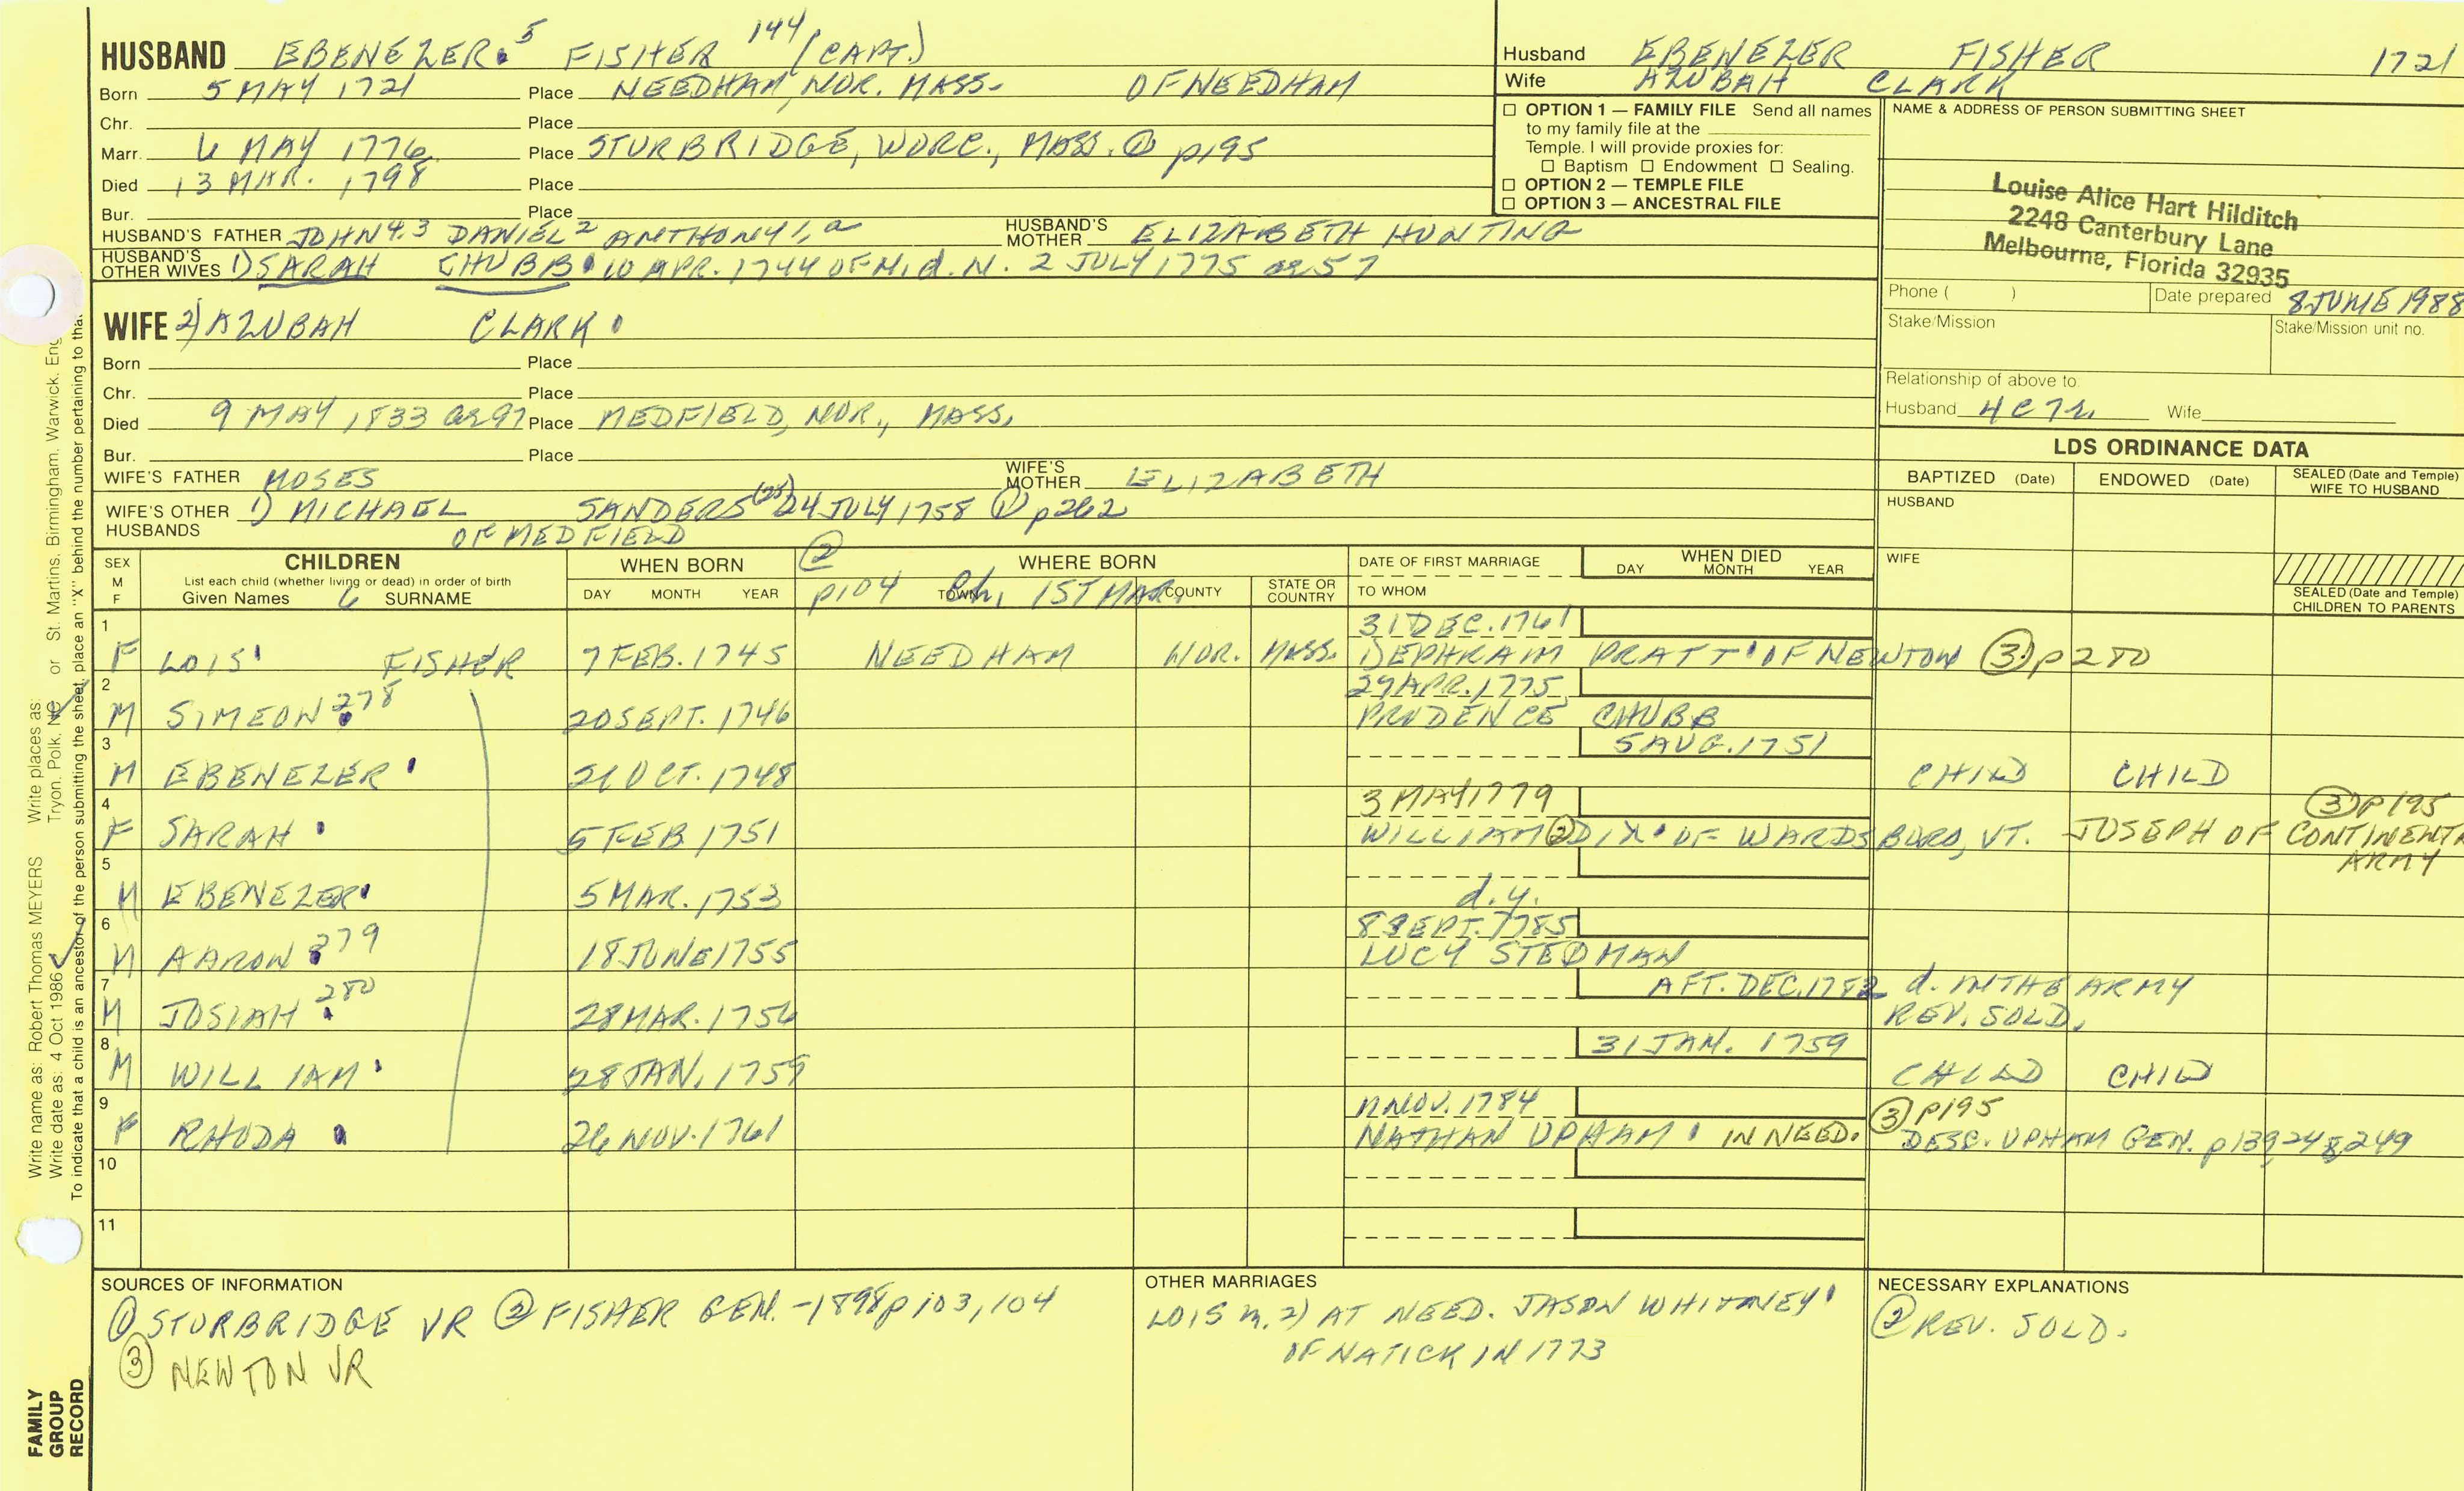 HUSBAND EBENEZER 5 FISHER 144 (CAPT.)
Born 5 MAY 1721 Place NEEDHAM, NOR. MASS. OF NEEDHAM
Chr. Place
Marr. 6 MAY 1776 Place STURBRIDGE, WORC., MASS. ① p195
Died 13 MAR. 1798 Place
Bur. Place
HUSBAND'S FATHER JOHN 4,3 DANIEL 2 ANTHONY 1, HUSBAND'S MOTHER ELIZABETH HUNTING
HUSBAND'S OTHER WIVES 1) SARAH CHUBB 10 APR. 1744 OF N. d. N. 2 JULY 1775 ae 57
Husband EBENEZER FISHER 1721
Wife AZUBAH CLARK
☐ OPTION 1 — FAMILY FILE Send all names
to my family file at the
Temple. I will provide proxies for:
☐ Baptism ☐ Endowment ☐ Sealing.
☐ OPTION 2 — TEMPLE FILE
☐ OPTION 3 — ANCESTRAL FILE
NAME & ADDRESS OF PERSON SUBMITTING SHEET
Louise Alice Hart Hilditch
2248 Canterbury Lane
Melbourne, Florida 32935
Phone ( ) Date prepared 8 JUNE 1988
Stake/Mission Stake/Mission unit no.
Relationship of above to:
Husband 4C7R Wife
WIFE 2) AZUBAH CLARK
Born Place
Chr. Place
Died 9 MAY 1833 ae 97 Place MEDFIELD, NOR., MASS.
Bur. Place
WIFE'S FATHER MOSES WIFE'S MOTHER ELIZABETH
WIFE'S OTHER HUSBANDS 1) MICHAEL SANDERS 24 JULY 1758 ① p262
OF MEDFIELD
LDS ORDINANCE DATA
BAPTIZED (Date) ENDOWED (Date) SEALED (Date and Temple) WIFE TO HUSBAND
HUSBAND
WIFE
SEALED (Date and Temple) CHILDREN TO PARENTS
SEX M F
CHILDREN
List each child (whether living or dead) in order of birth
Given Names 6 SURNAME
WHEN BORN
DAY MONTH YEAR
② WHERE BORN
p104 Ch. 1ST MAR.
TOWN COUNTY STATE OR COUNTRY
DATE OF FIRST MARRIAGE
TO WHOM
WHEN DIED
DAY MONTH YEAR
1 31 DEC. 1761
F LOIS FISHER 7 FEB. 1745 NEEDHAM NOR. MASS. 1) EPHRAIM PRATT OF NEWTON ③ p280
2 278 27 APR. 1775
M SIMEON 20 SEPT. 1746 PRUDENCE CHUBB
3 5 AUG. 1751
M EBENEZER 21 OCT. 1748 CHILD CHILD
4 3 MAY 1779 ③ p195
F SARAH 5 FEB. 1751 WILLIAM ② DIX OF WARDSBORO, VT. JOSEPH OF CONTINENTA
ARMY
5
M EBENEZER 5 MAR. 1753 d.y.
6 279 8 SEPT. 1785
M AARON 18 JUNE 1755 LUCY STEDMAN
7 280 AFT. DEC. 1782 d. IN THE ARMY
M JOSIAH 28 MAR. 1756 REV. SOLD.
8 31 JAN. 1759
M WILLIAM 28 JAN. 1759 CHILD CHILD
9 11 NOV. 1784 ③ p195
F RHODA 26 NOV. 1761 NATHAN UPHAM IN NEED. DESC. UPHAM GEN. p139, 248, 249
10
11
SOURCES OF INFORMATION
① STURBRIDGE VR ② FISHER GEN. - 1898 p103, 104
③ NEWTON VR
OTHER MARRIAGES
LOIS m. 2) AT NEED. JASON WHITNEY
OF NATICK IN 1773
NECESSARY EXPLANATIONS
② REV. SOLD.
Write name as: Robert Thomas MEYERS Write places as:
Write date as: 4 Oct 1986 Tryon, Polk, NC or St. Martins, Birmingham, Warwick, Eng
To indicate that a child is an ancestor of the person submitting the sheet, place an "X" behind the number pertaining to that
FAMILY
GROUP
RECORD